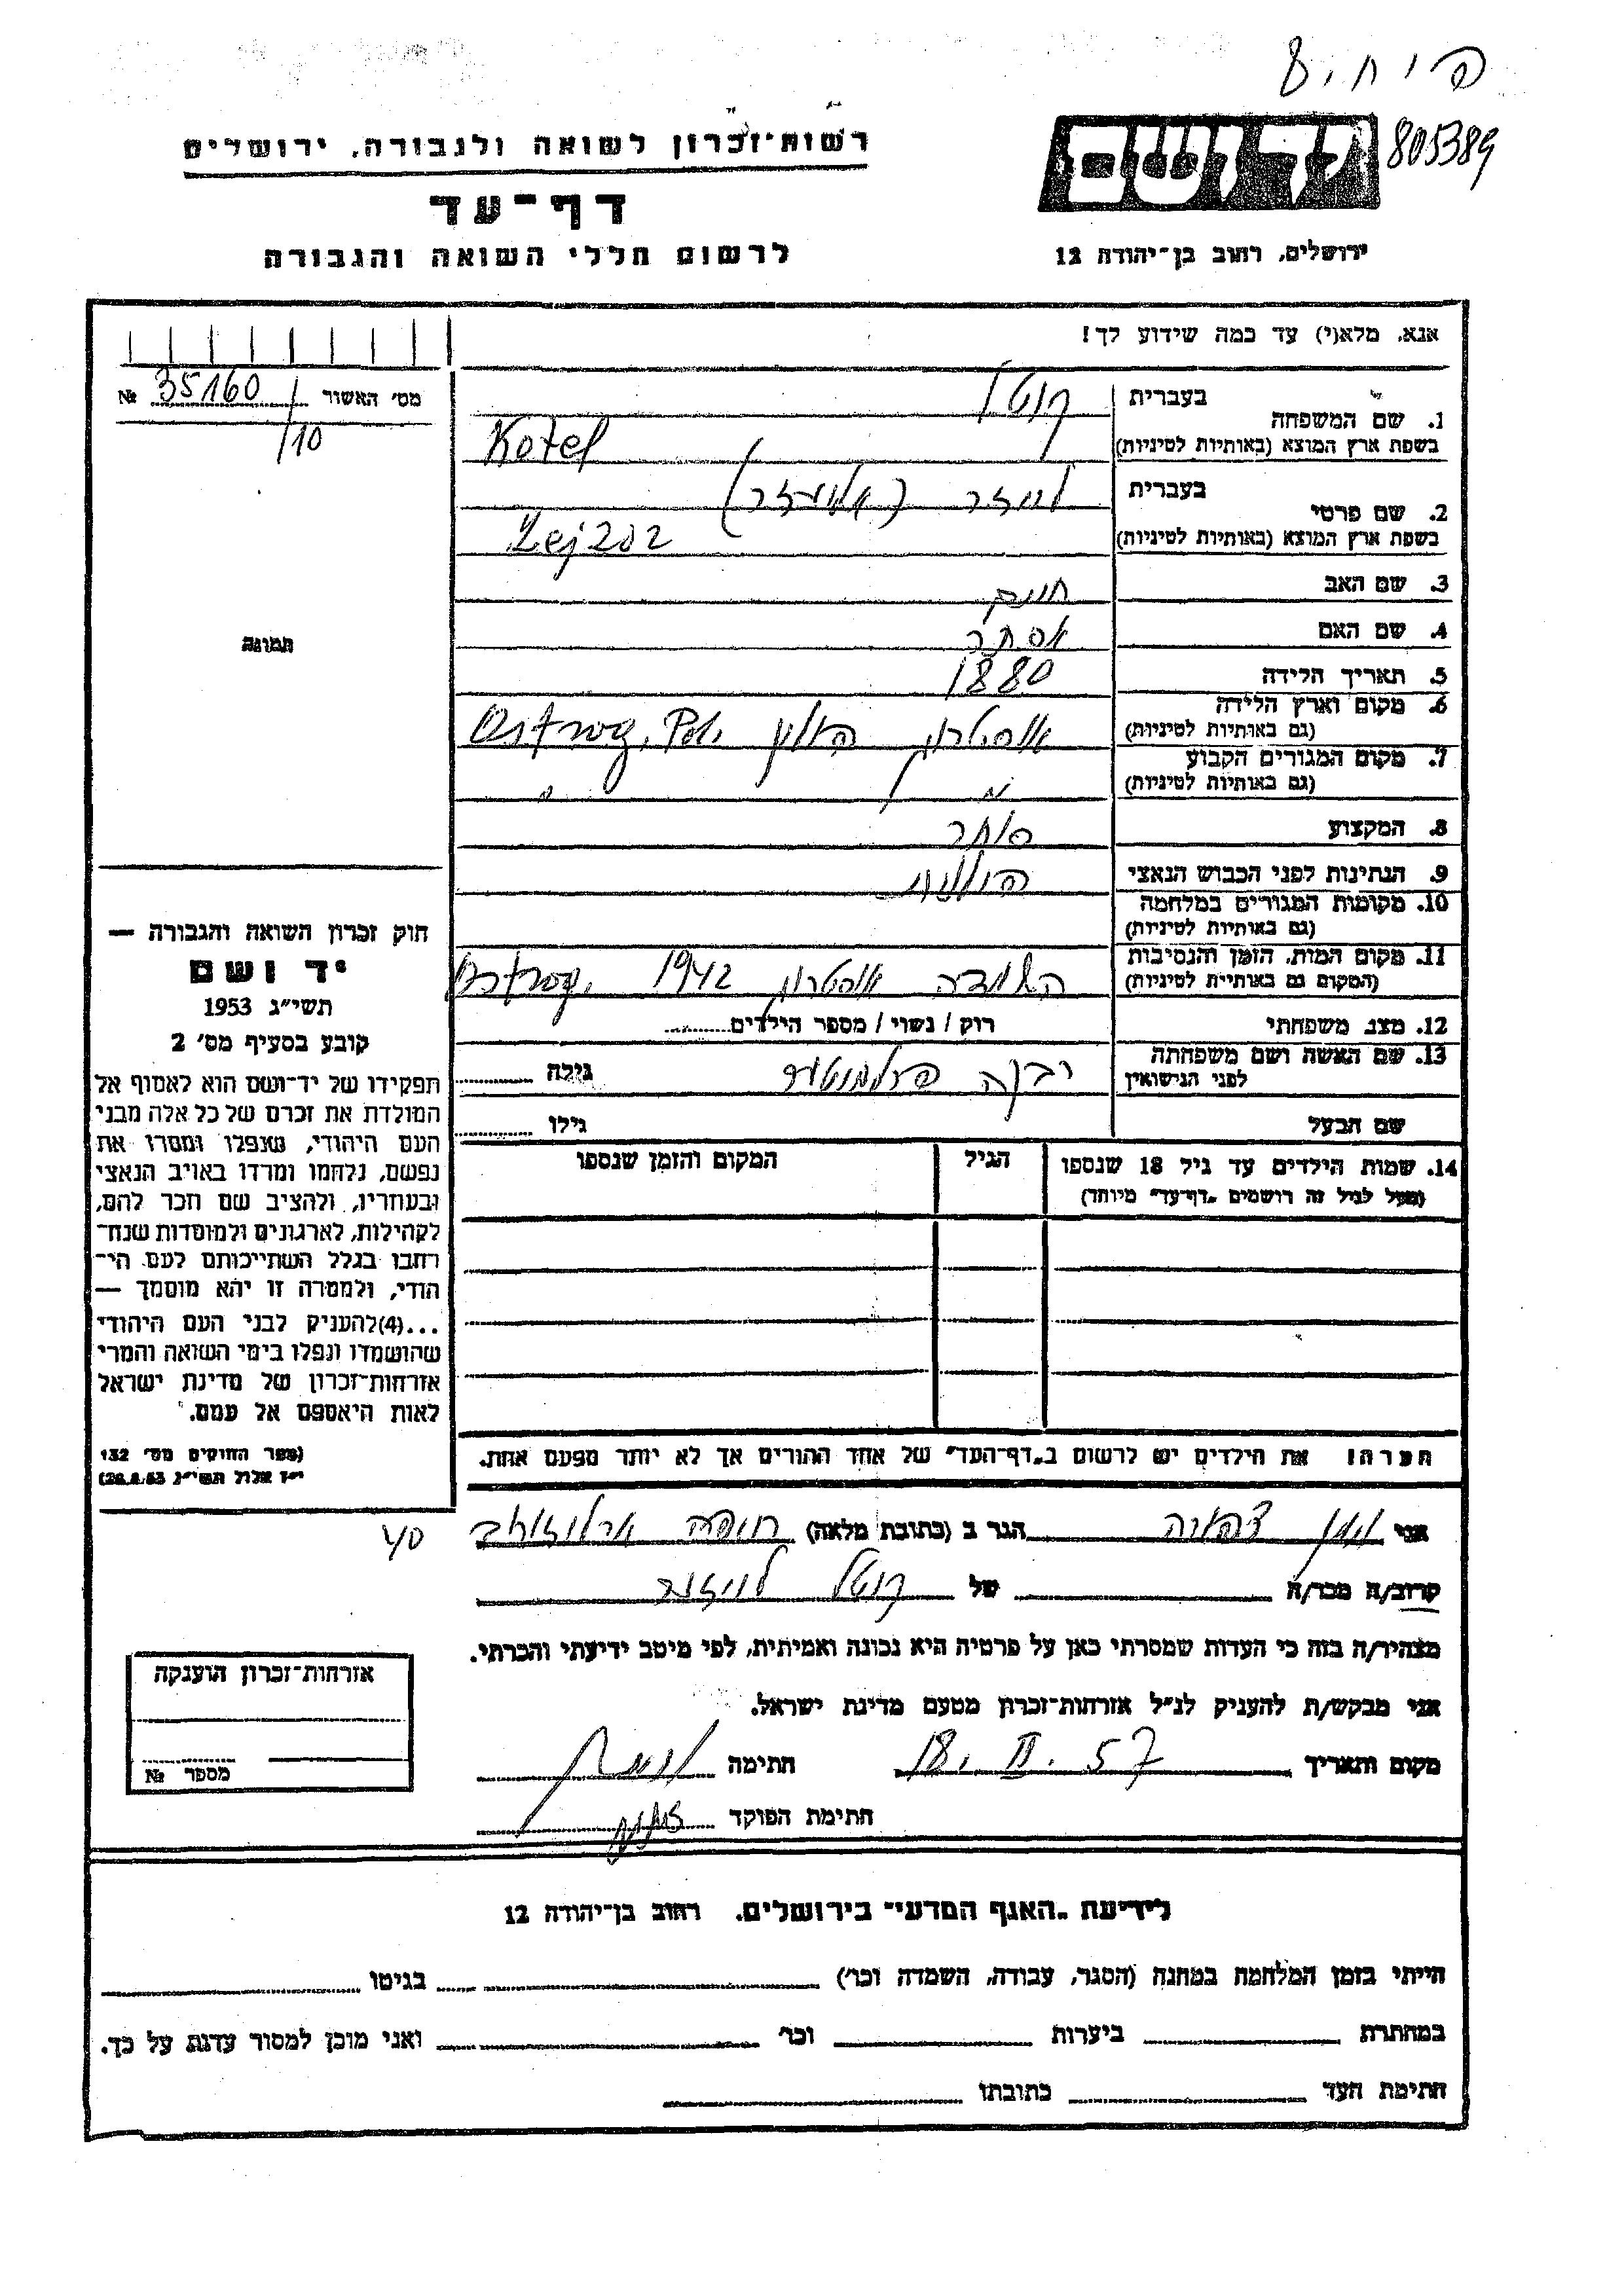 805389
רשות־זכרון לשואה ולגבורה, ירושלים
דף־עד
לרשום חללי השואה והגבורה
יד ושם
ירושלים, רחוב בן־יהודה 12
אנא, מלא(י) עד כמה שידוע לך!
מס׳ האשור 35160 №
/10
תמונה
1. שם המשפחה בעברית קוטל
בשפת ארץ המוצא (באותיות לטיניות) Kotel
2. שם פרטי בעברית לייזר (אליעזר)
בשפת ארץ המוצא (באותיות לטיניות) Lejzor
3. שם האב חיים
4. שם האם אסתר
5. תאריך הלידה 1880
6. מקום וארץ הלידה (גם באותיות לטיניות) אוסטרוג פולין Ostrog, Pol.
7. מקום המגורים הקבוע (גם באותיות לטיניות) " "
8. המקצוע סוחר
9. הנתינות לפני הכבוש הנאצי פולנית
10. מקומות המגורים במלחמה (גם באותיות לטיניות)
11. מקום המות, הזמן והנסיבות (המקום גם באותיות לטיניות) השמדה אוסטרוג 1942 Ostrog,
12. מצב משפחתי רוק / נשוי / מספר הילדים
13. שם האשה ושם משפחתה לפני הנישואין רבקה גילה
שם הבעל גילו
14. שמות הילדים עד גיל 18 שנספו הגיל המקום והזמן שנספו
(מעל לגיל זה רושמים „דף־עד״ מיוחד)
חוק זכרון השואה והגבורה —
יד ושם
תשי״ג 1953
קובע בסעיף מס׳ 2
תפקידו של יד־ושם הוא לאסוף אל
המולדת את זכרם של כל אלה מבני
העם היהודי, שנפלו ומסרו את
נפשם, נלחמו ומרדו באויב הנאצי
ובעוזריו, ולהציב שם וזכר להם,
לקהילות, לארגונים ולמוסדות שנח־
רחבו בגלל השתייכותם לעם הי־
הודי, ולמטרה זו יהא מוסמך —
...(4)להעניק לבני העם היהודי
שהושמדו ונפלו בימי השואה והמרי
אזרחות־זכרון של מדינת ישראל
לאות היאספם אל עמם.
(ספר החוקים מס׳ 132
י״ז אלול תשי״ג 28.8.53)
הערה! את הילדים יש לרשום ב„דף־העד״ של אחד ההורים אך לא יותר מפעם אחת.
אני הגר ב (כתובת מלאה) חיפה ארלוזורוב
קרוב/ה מכר/ה של קוטל לייזר
מצהיר/ה בזה כי העדות שמסרתי כאן על פרטיה היא נכונה ואמיתית, לפי מיטב ידיעתי והכרתי.
אני מבקש/ת להעניק לנ״ל אזרחות־זכרון מטעם מדינת ישראל.
מקום ותאריך 18. II. 57 חתימה
חתימת הפוקד
אזרחות־זכרון הוענקה
מספר №
לידיעת „האגף המדעי״ בירושלים, רחוב בן־יהודה 12
הייתי בזמן המלחמה במחנה (הסגר, עבודה, השמדה וכר׳) בגיטו
במחתרת ביערות וכר׳ ואני מוכן למסור עדות על כך.
חתימת העד כתובתו